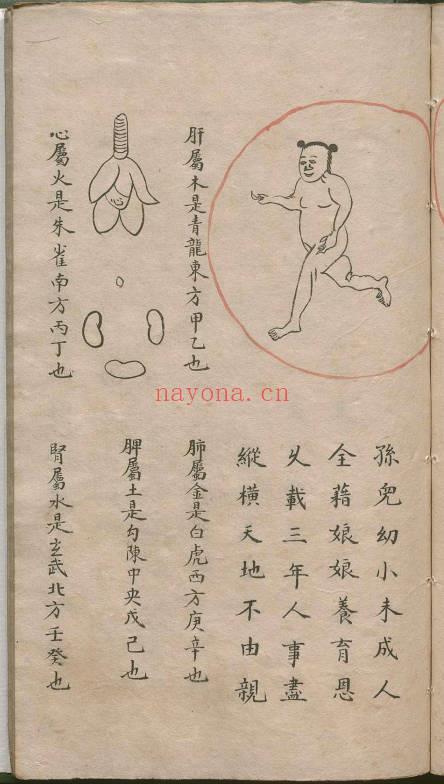 孫兒幼小未成人
全藉娘娘養育恩
乆載三年人事盡
縱橫天地不由親
肝屬木是青龍東方甲乙也
肺屬金是白虎西方庚辛也
心
脾屬土是勾陳中央戊己也
心屬火是朱雀南方丙丁也
腎屬水是玄武北方壬癸也
nayona.cn